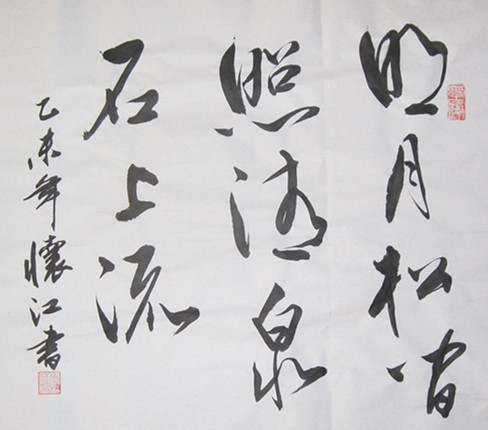 明月松间
照清泉
石上流
乙未年懷江書